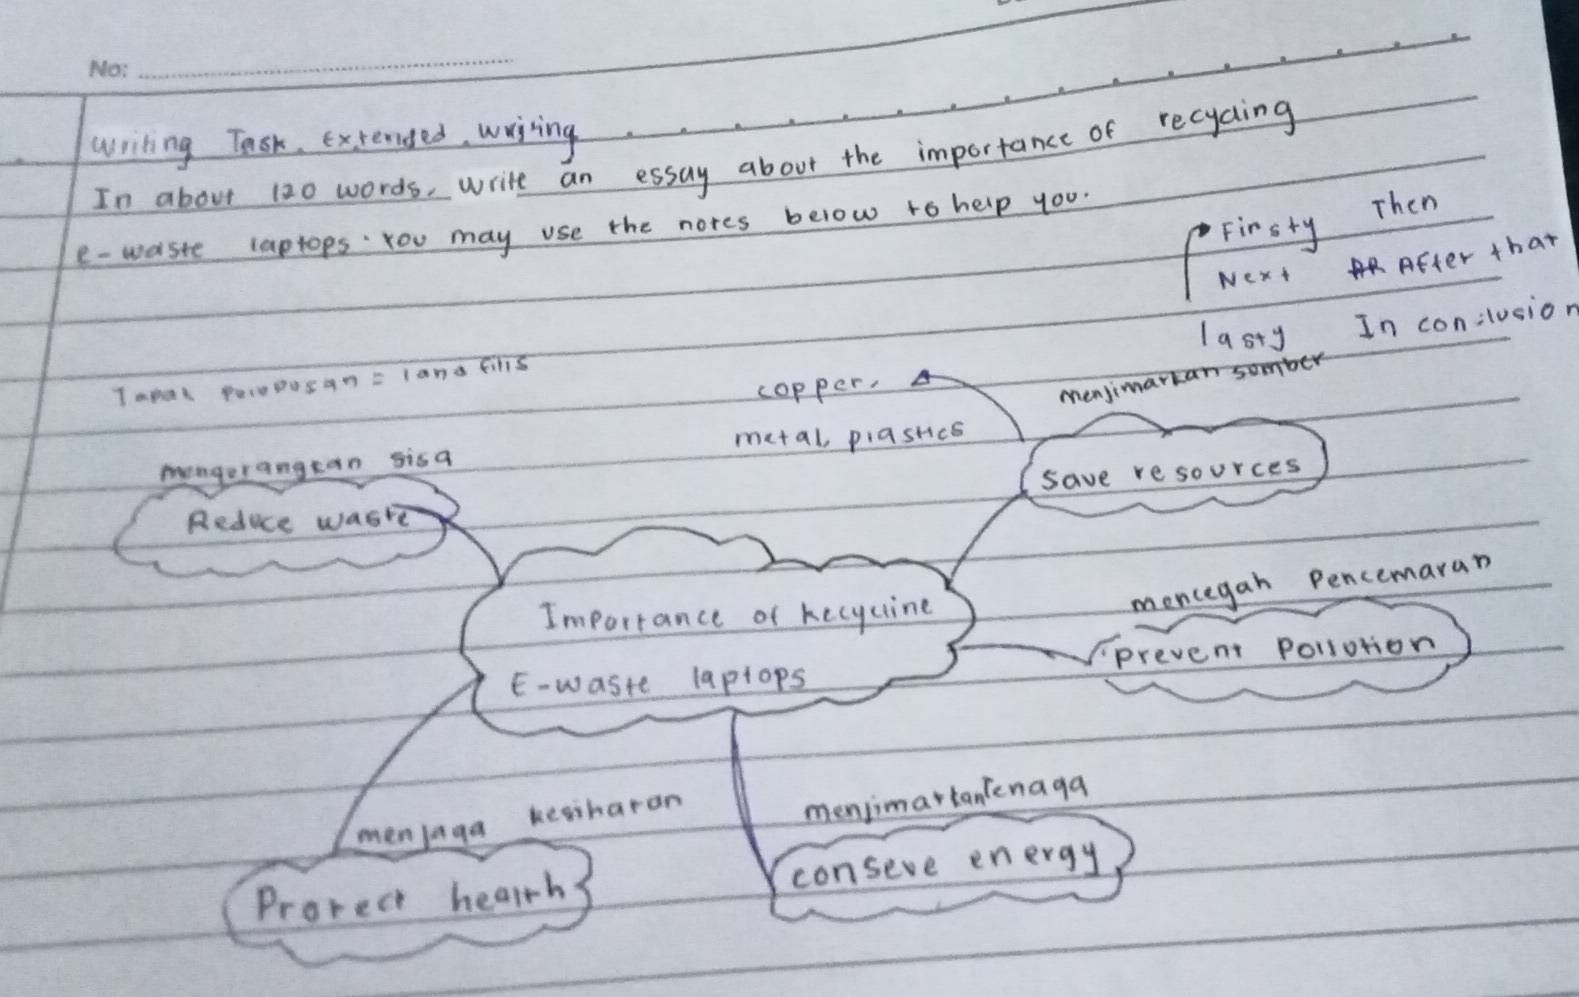 No:
Writing Task. Extended. writing
In about 120 words, write an essay about the importance of recycling
e-waste laptops. You may use the notes below to help you.
Firsty Then
Next After that
lasty In conclusion
Tapak Pelupusan = land fills
copper,
metal, plastics
menjimatkan sumber
save resources
mengurangkan sisa
Reduce waste
Importance of Recycline
E-waste laptops
mencegah Pencemaran
prevent Pollution
menjaga kesihatan
Protect health
menjimatkan Tenaga
conseve energy